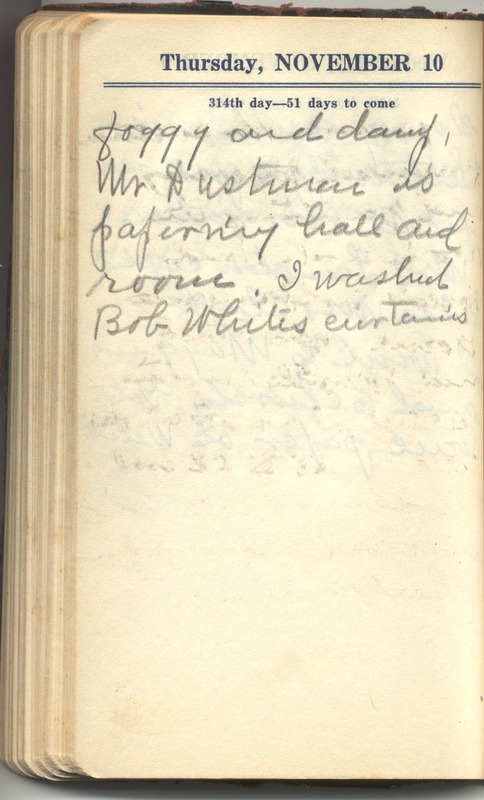 Thursday, NOVEMBER 10
314th day—51 days to come
foggy and damp,
Mr Dustman is
papering hall and
room. I washed
Bob Whites curtains